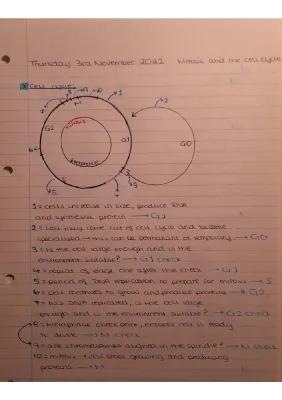 Thursday 3rd November 2022 Mitosis and the cell cycle
Cell cycle:
7 8 9 10 1
M
2
G2
MITOSIS
G1
G0
INTERPHASE
6
3
4
S
5
1 = cells increase in size, produce RNA
and synthesise protein → G1
2 = cell may come out of cell cycle and become
specialised → this can be permanent or temporary → G0
3 = is the cell large enough and is the
environment suitable? → G1 check
4 = repeat of stage one after the check → G1
5 = period of DNA replication to prepare for mitosis → S
6 = cell continues to grow and produce proteins → G2
7 = has DNA replicated, is the cell large
enough and is the environment suitable? → G2 check
8 = Metaphase checkpoint, ensures cell is ready
to divide → M check
9 = are chromosomes aligned in the spindle? → M check
10 = mitosis → cell stops growing and producing
proteins → M